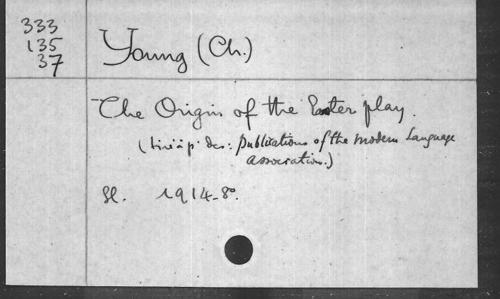 333
135
37
Young (Ch.)
The Origin of the Easter play.
(tiré à p. des: publications of the modern Language
association.)
Sl. 1914-8º.